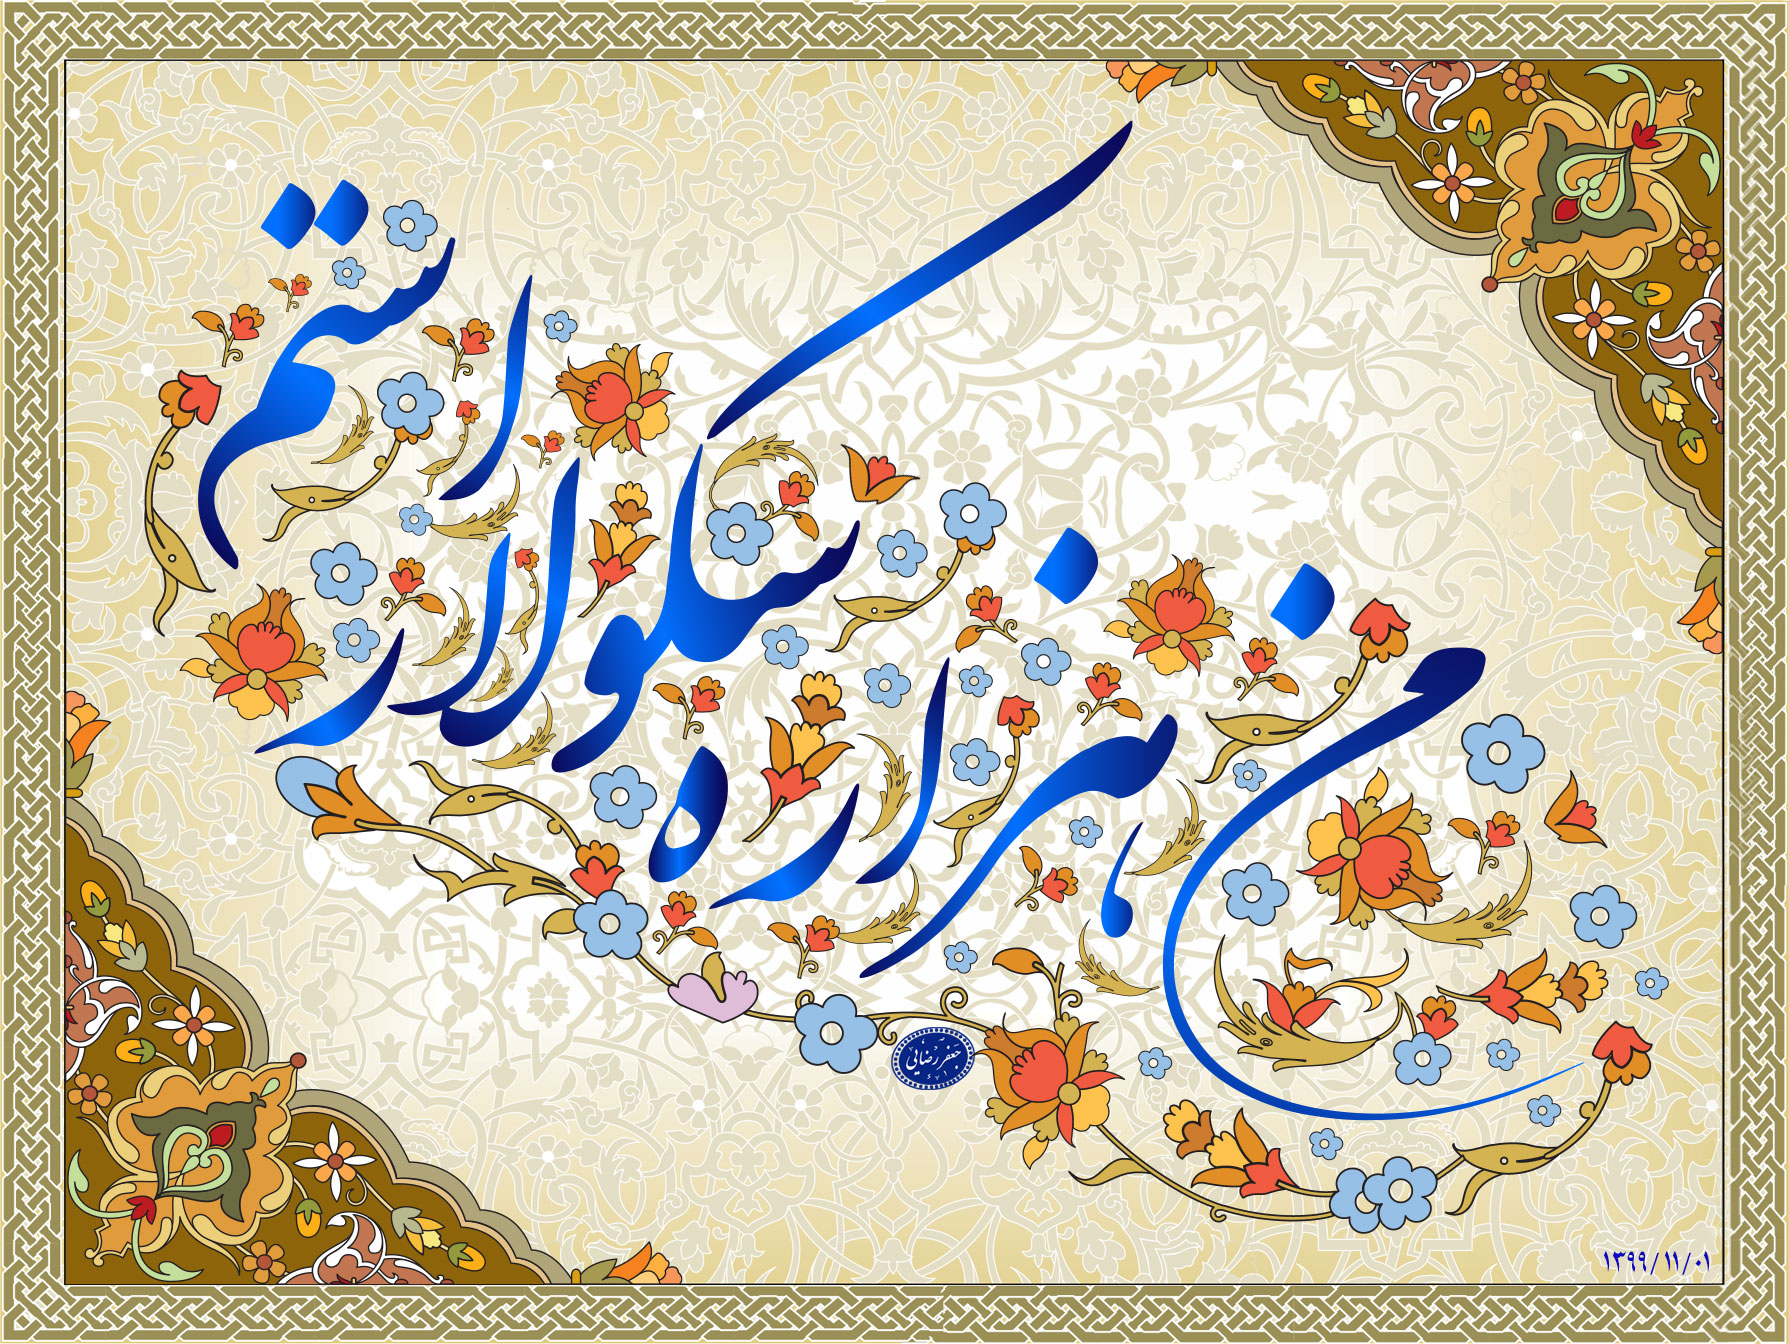 من هزاره سکولار استم
جعفر رضایی
۱۳۹۹/۱۱/۰۱